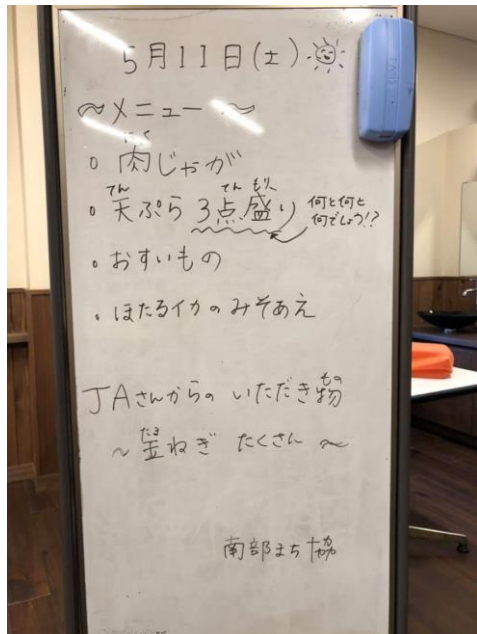 5月11日(土)
～メニュー～
にく
。肉じゃが
てん てん もり
。天ぷら 3点盛り
何と何と
何でしょう!?
。おすいもの
。ほたるイカのみそあえ
もの
JAさんからの いただき物
たま
～玉ねぎ たくさん～
南部まち協